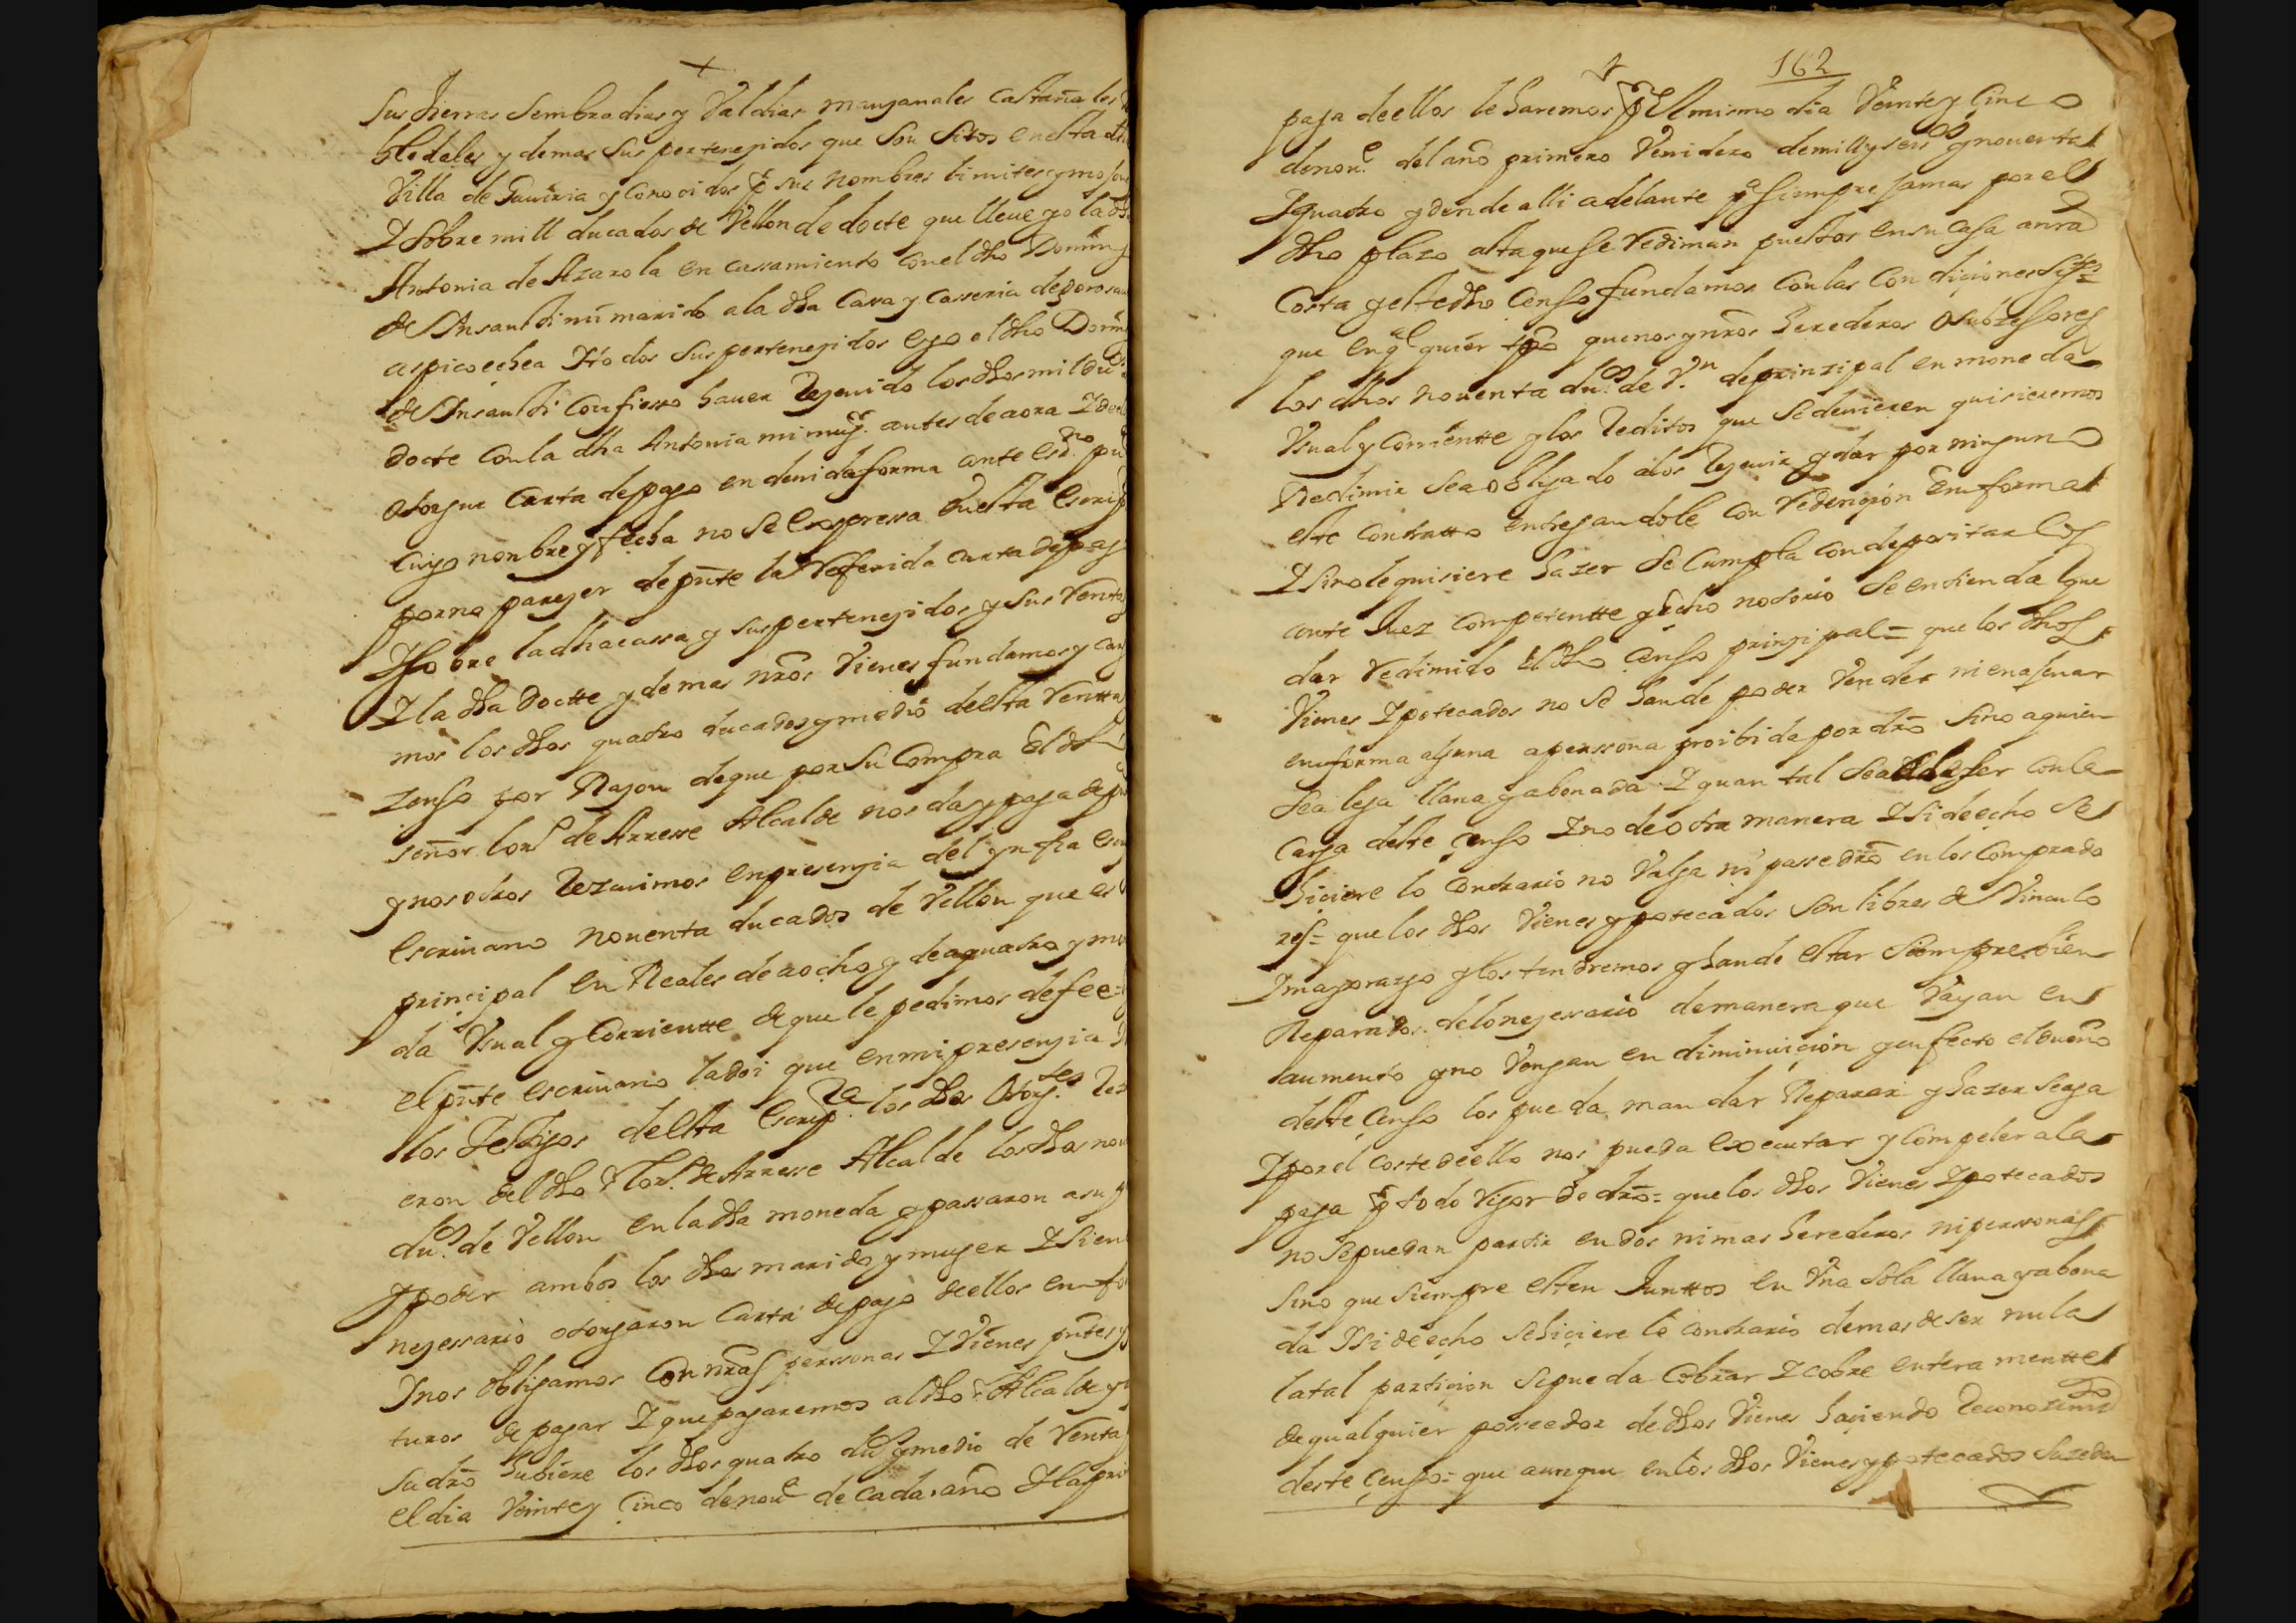 +
sus tierras sembradias y Valdias manzanales castañales
bledales y demas sus pertenezidos que son sitos en esta dha
Villa de Gaviria y conozidos Pr sus nombres limites y mojon
Y sobre mill ducados de Vellon de docte que lleue yo la dha
Antonia de Azarola en cassamiento con el dho Doming
de Insausti mi marido a la dha Cassa y Casseria de
aspicoechea Y todos sus pertenezidos e yo el dho Doming
de Insausti Confiesso hauer Rezeuido los dhos mil du
docte con la dha Antonia mi mugr. antes de aora Y de el
otorgue Carta de pago en deuida forma ante esno. pu
cuyo nonbre y fecha no se espressa en esta escrip
por no parezer de pnte la Referida carta de pag
Y sobre la dha cassa y sus pertenezidos y sus Rentas
Y la dha doctte y demas nros Vienes fundamos y carg
mos los dhos quatro ducados y medio de esta Rentta
zenso por Razon de que por su Compra El dho
señor Lorco de Arrese Alcalde nos da y paga de pre
y nosotros Rezeuimos en presenzia del ynfra escri
escriuano nouenta ducados de Vellon que es
principal en Reales de a ocho y de a quatro y mo
da Vsual y Corrientte de que le pedimos de fee =
el pnte escriuano la doi que en mi presenzia
los Testigos de esta Escripra. los dhos Otorgtes. Rez
eron del dho Lorco de Arrese Alcalde los dhos nou
dus. de Vellon en la dha moneda y passaron a su p
y poder ambos los dhos marido y muger Y sien
nezessario otorgaron Carta de pago de ellos en fo
Y nos obligamos Con nras perssonas Y Vienes pntes y
turos de pagar Y que pagaremos al dho Sr Alcalde y
su dro hubiere los dhos quatro dus y medio de Renta
el dia Veinte y Cinco de noue de cada año Y la pri
162
paga de ellos le haremos Pa El mismo dia Veinte y Cinco
de noue. del año primero Venidero de mill y seisos y nouenta
Y quatro y dende alli adelante pa siempre jamas por el
dho plazo asta que se Rediman puestos en su casa a nra
Costa y este dho Censo fundamos con las Condiziones sigtes =
que en qalquier tpo que nos y nros herederos o subzesores
los dhos nouenta dus. de Vn de prinzipal en moneda
Vsual y Corrientte y los Reditos que se deuieren quisieremos
Redimir sea obligado a los Rezeuir y dar por ninguno
este Contratto entregandole con Redenzion en forma
Y si no le quisiere hazer se Cumpla con depositar los
ante Juez competentte y hecho notorio se entienda que
dar Redimido El dho Censo prinzipal = que los dhos
Vienes Ypotecados no se han de poder Vender ni enajenar
en forma alguna a perssona proibida por dro sino a quien
sea lega llana y abonada Y quan tal sea a de ser con la
Carga de este zenso Y no de otra manera Y si de echo se
hiciere lo contrario no Valga ni passe dro en los Comprado
res = que los dhos Vienes ypotecados son libres de Vinculo
Y mayorazgo y los tendremos y han de estar siempre bien
Reparados de lo nezessario de manera que Vayan en
aumento y no Vengan en diminuizion y en fecto el dueño
deste zenso los pueda mandar Reparar y hazer se aga
Y por el coste de ello nos pueda executar y Compeler a la
paga Pr todo Rigor de dro = que los dhos Vienes Ypotecados
no se puedan partir en dos ni mas herederos ni perssonas
sino que siempre esten Junttos en Vna sola llana y abona
da Y si de echo se hiciere lo contrario demas de ser nula
la tal partizion se pueda Cobrar Y cobre entera mentte
de qualquier posseedor de dhos Vienes haziendo Reconozimto
deste zenso = que aunque en los dhos Vienes ypotecados suzedan